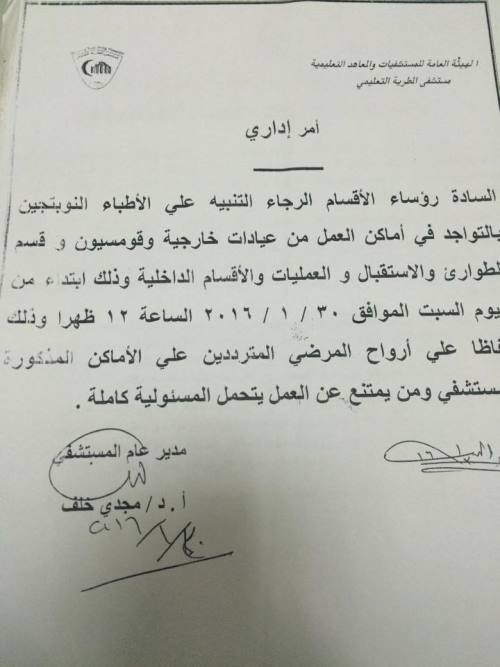 الهيئة العامة للمستشفيات والمعاهد التعليمية
مستشفى المطرية التعليمي
أمر إداري
السادة رؤساء الأقسام الرجاء التنبيه علي الأطباء النوبتجين
بالتواجد في أماكن العمل من عيادات خارجية وقومسيون و قسم
لطوارئ والاستقبال و العمليات والأقسام الداخلية وذلك ابتداء من
يوم السبت الموافق ٣٠ / ١ / ٢٠١٦ الساعة ١٢ ظهرا وذلك
فاظا علي أرواح المرضي المترددين علي الأماكن المذكورة
مستشفي ومن يمتنع عن العمل يتحمل المسئولية كاملة .
مدير عام المستشفي
أ.د/ مجدي خلف
٢٠١٦/١/٣٠